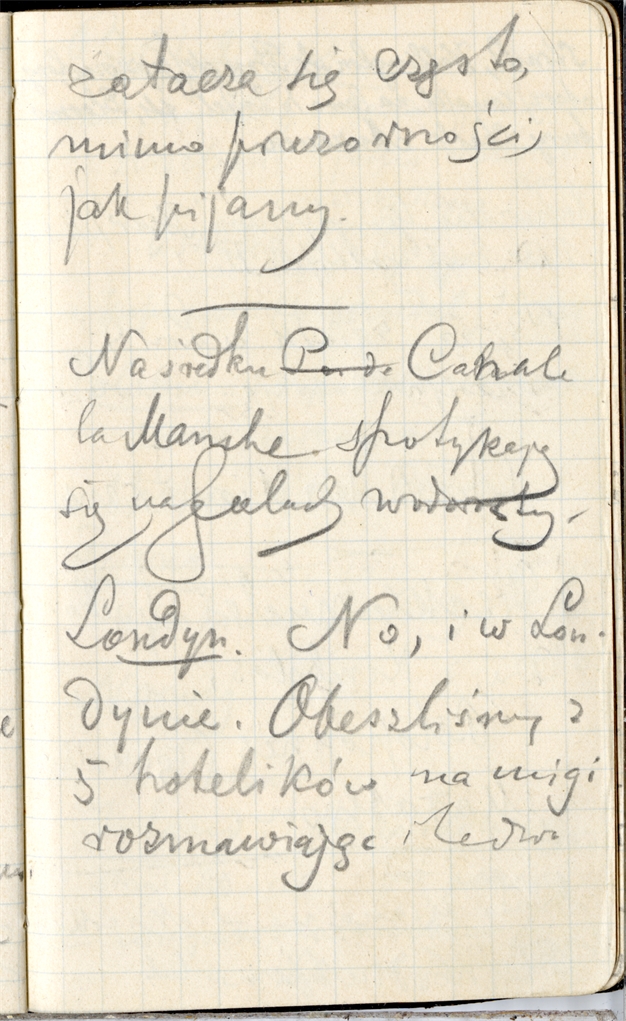 zatacza się często,
mimo powzorności,
jak pijany.
Na środku Canale
la Manche spotykają
się na falach wodorosty.
Londyn. No, i w Lon-
dynie. Obeszliśmy z
5 hotelików na migi
rozmawiając i ledwo